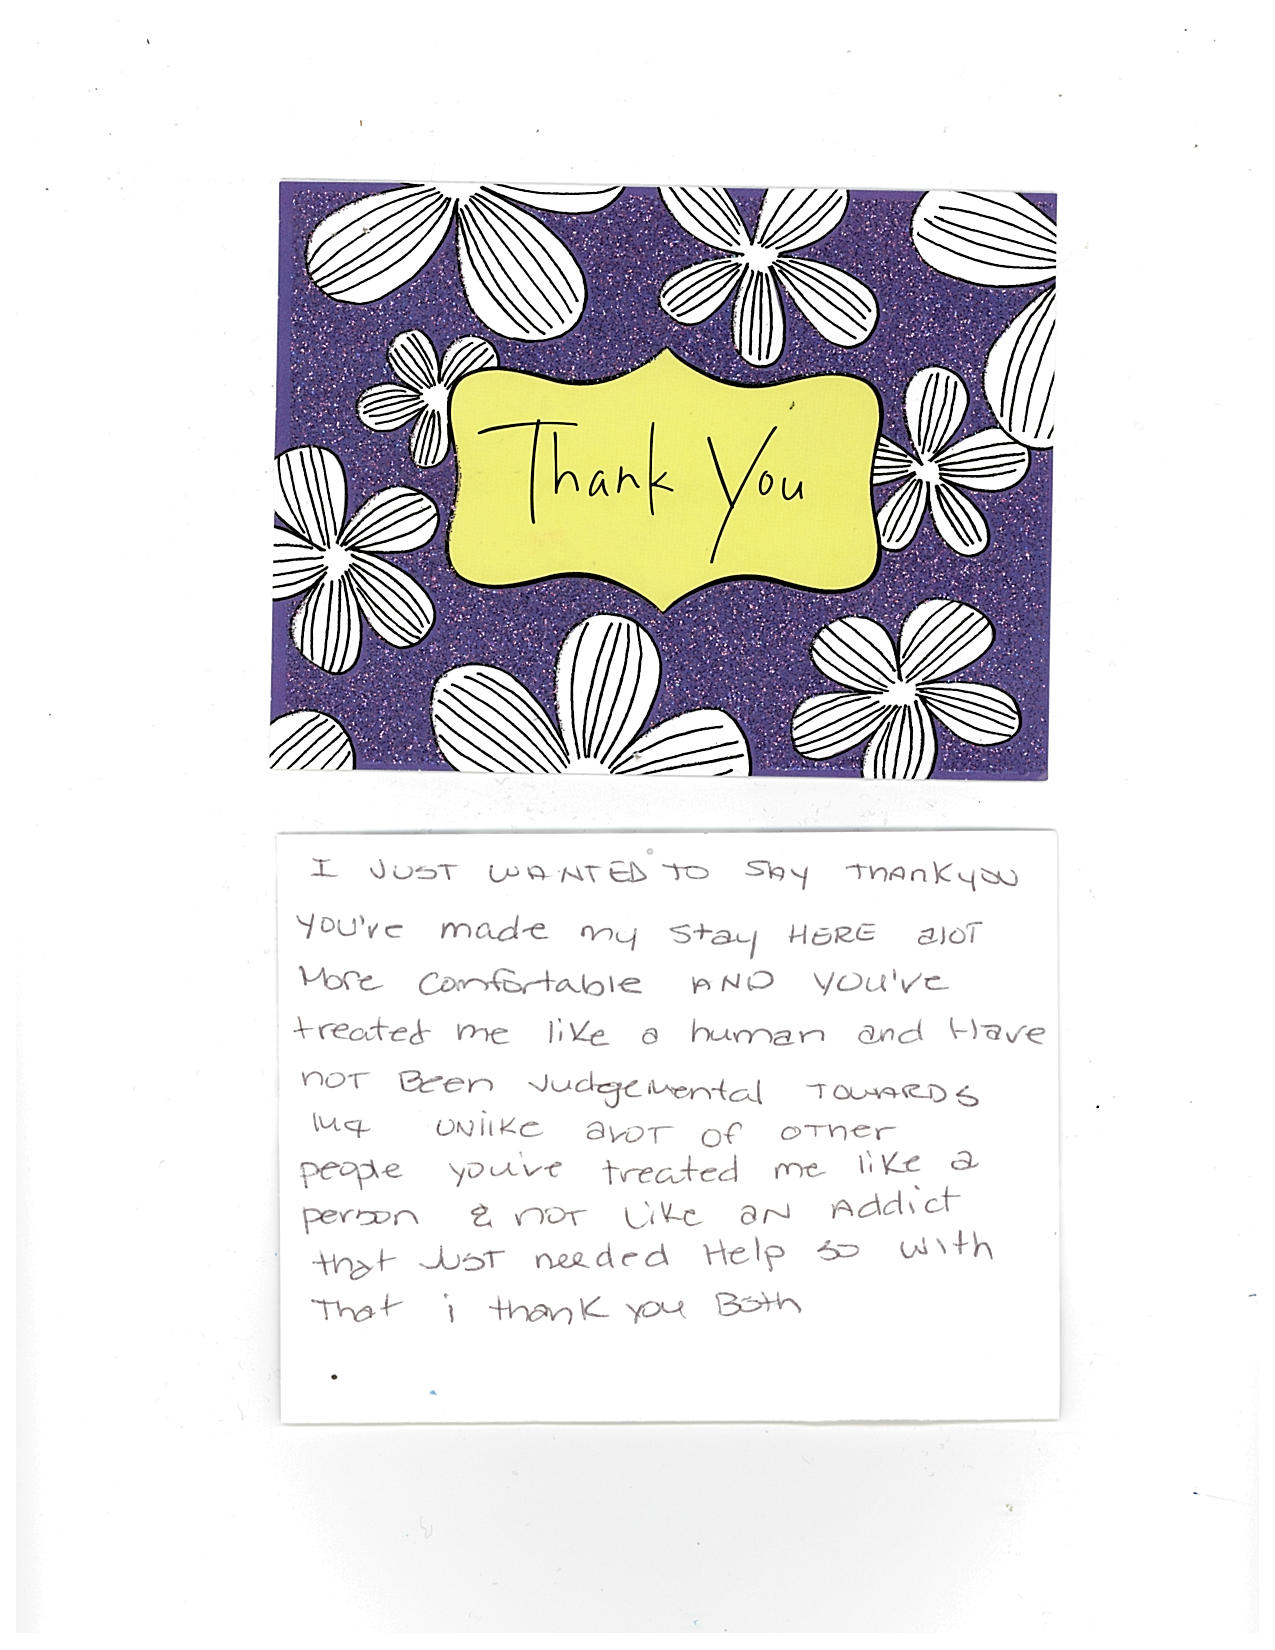 Thank You
I JUST WANTED TO SAY THANKyou
YOU've made my stay HERE alOT
More comfortable AND YOU've
treated me like a human and Have
noT Been Judgemental TOWARDS
me UNlIKE alOT OF OTHer
people you've treated me like a
person & noT Like aN Addict
that JUST needed Help so with
That i thank you Both